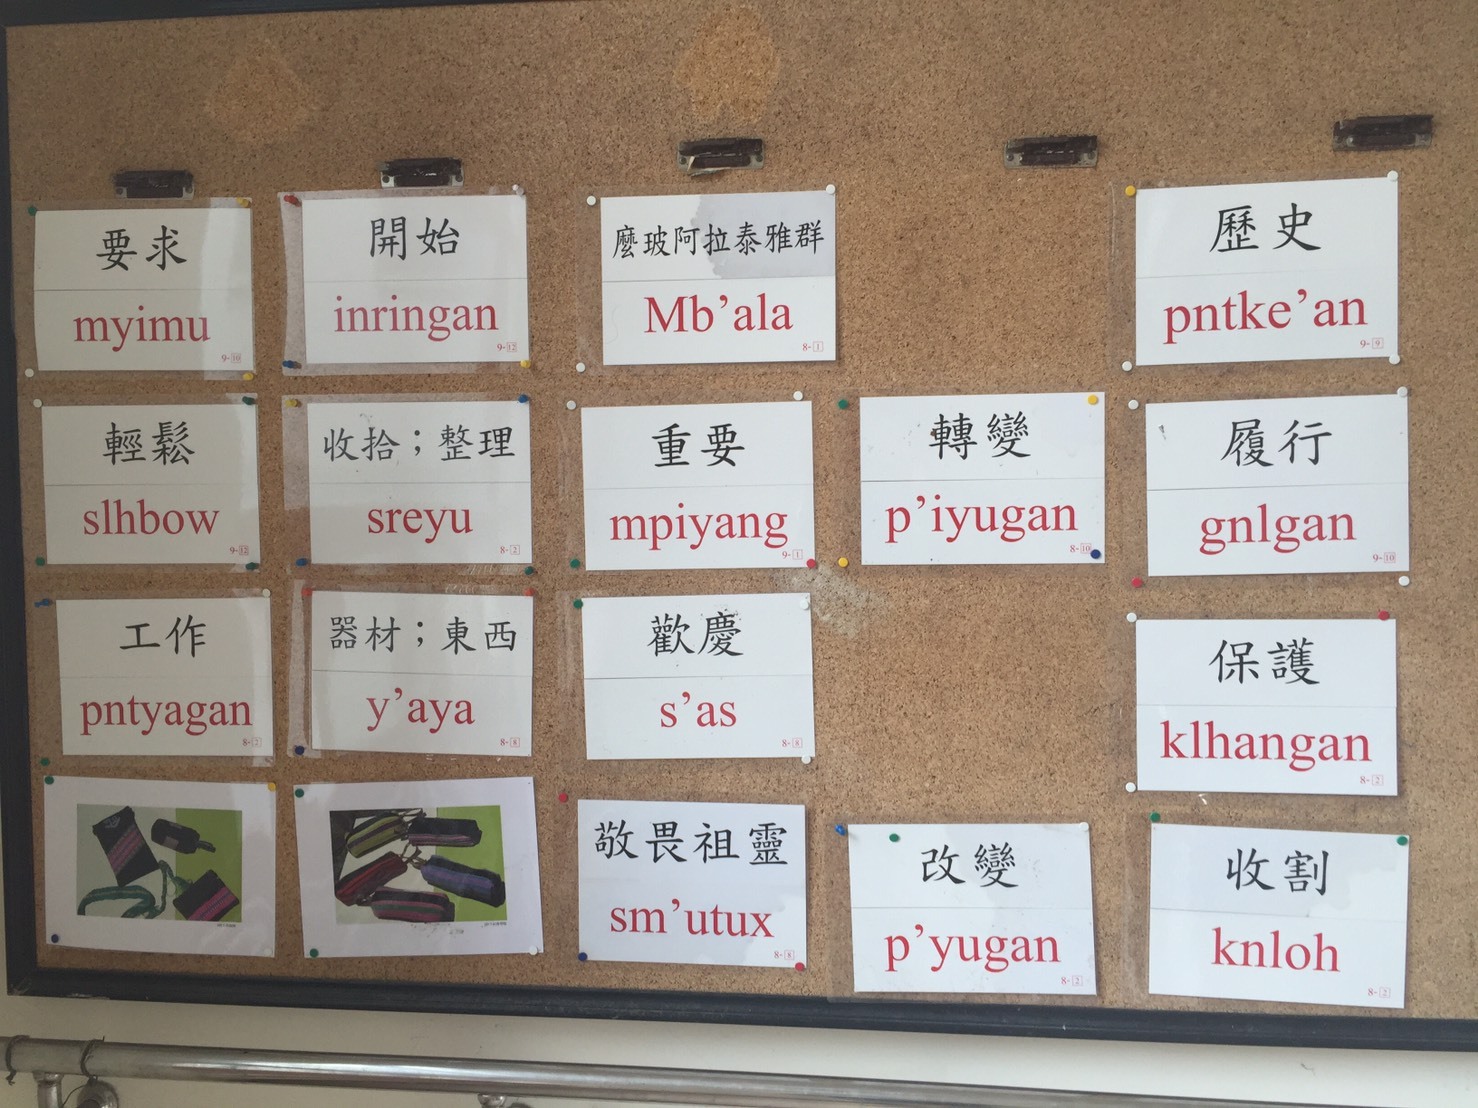 要求
myimu
9-10
開始
inringan
9-12
麼玻阿拉泰雅群
Mb’ala
8-1
歷史
pntke’an
9-9
輕鬆
slhbow
9-12
收拾；整理
sreyu
8-2
重要
mpiyang
9-1
轉變
p’iyugan
8-10
履行
gnlgan
9-10
工作
pntyagan
8-2
器材；東西
y’aya
8-8
歡慶
s’as
8-8
保護
klhangan
8-2
敬畏祖靈
sm’utux
8-8
改變
p’yugan
8-2
收割
knloh
8-2